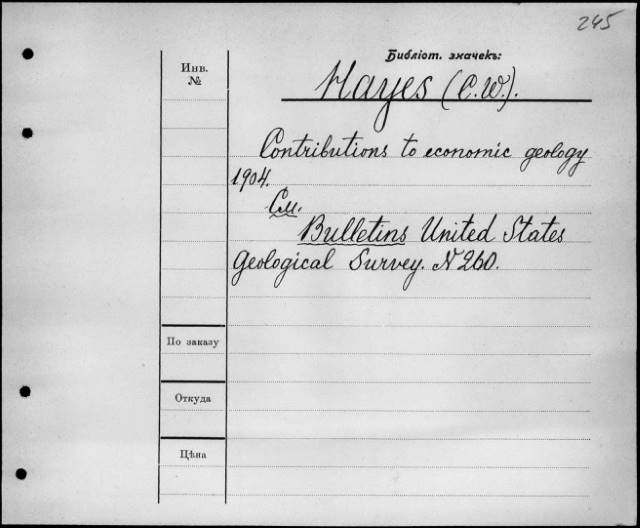 245
Библіот. значекъ:
Инв.
№
Hayes (C.W.).
Contributions to economic geology
1904.
См.
Bulletins United States
Geological Survey. N 260.
По заказу
Откуда
Цѣна